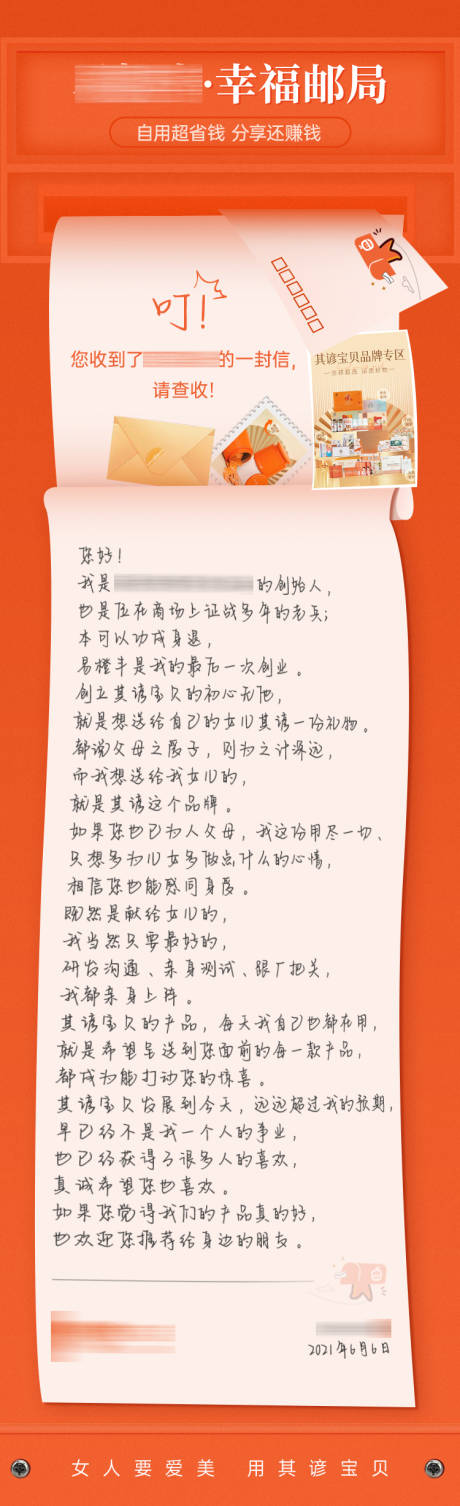 ·幸福邮局
自用超省钱 分享还赚钱
叮!
您收到了的一封信,
请查收!
其谚宝贝品牌专区
您好!
我是的创始人,
也是位在商场上征战多年的老兵;
本可以功成身退,
易橙丰是我的最后一次创业。
创立其谚宝贝的初心无他,
就是想送给自己的女儿其谚一份礼物。
都说父母之爱子,则为之计深远,
而我想送给我女儿的,
就是其谚这个品牌。
如果您也已为人父母,我这份用尽一切、
只想多为儿女多做点什么的心情,
相信您也能感同身受。
既然是献给女儿的,
我当然只要最好的,
研发沟通、亲身测试、跟厂把关,
我都亲身上阵。
其谚宝贝的产品,每天我自己也都在用,
就是希望呈送到您面前的每一款产品,
都成为能打动您的惊喜。
其谚宝贝发展到今天,远远超过我的预期,
早已经不是我一个人的事业,
也已经获得了很多人的喜欢,
真诚希望您也喜欢。
如果您觉得我们的产品真的好,
也欢迎您推荐给身边的朋友。
2021年6月6日
女人要爱美 用其谚宝贝